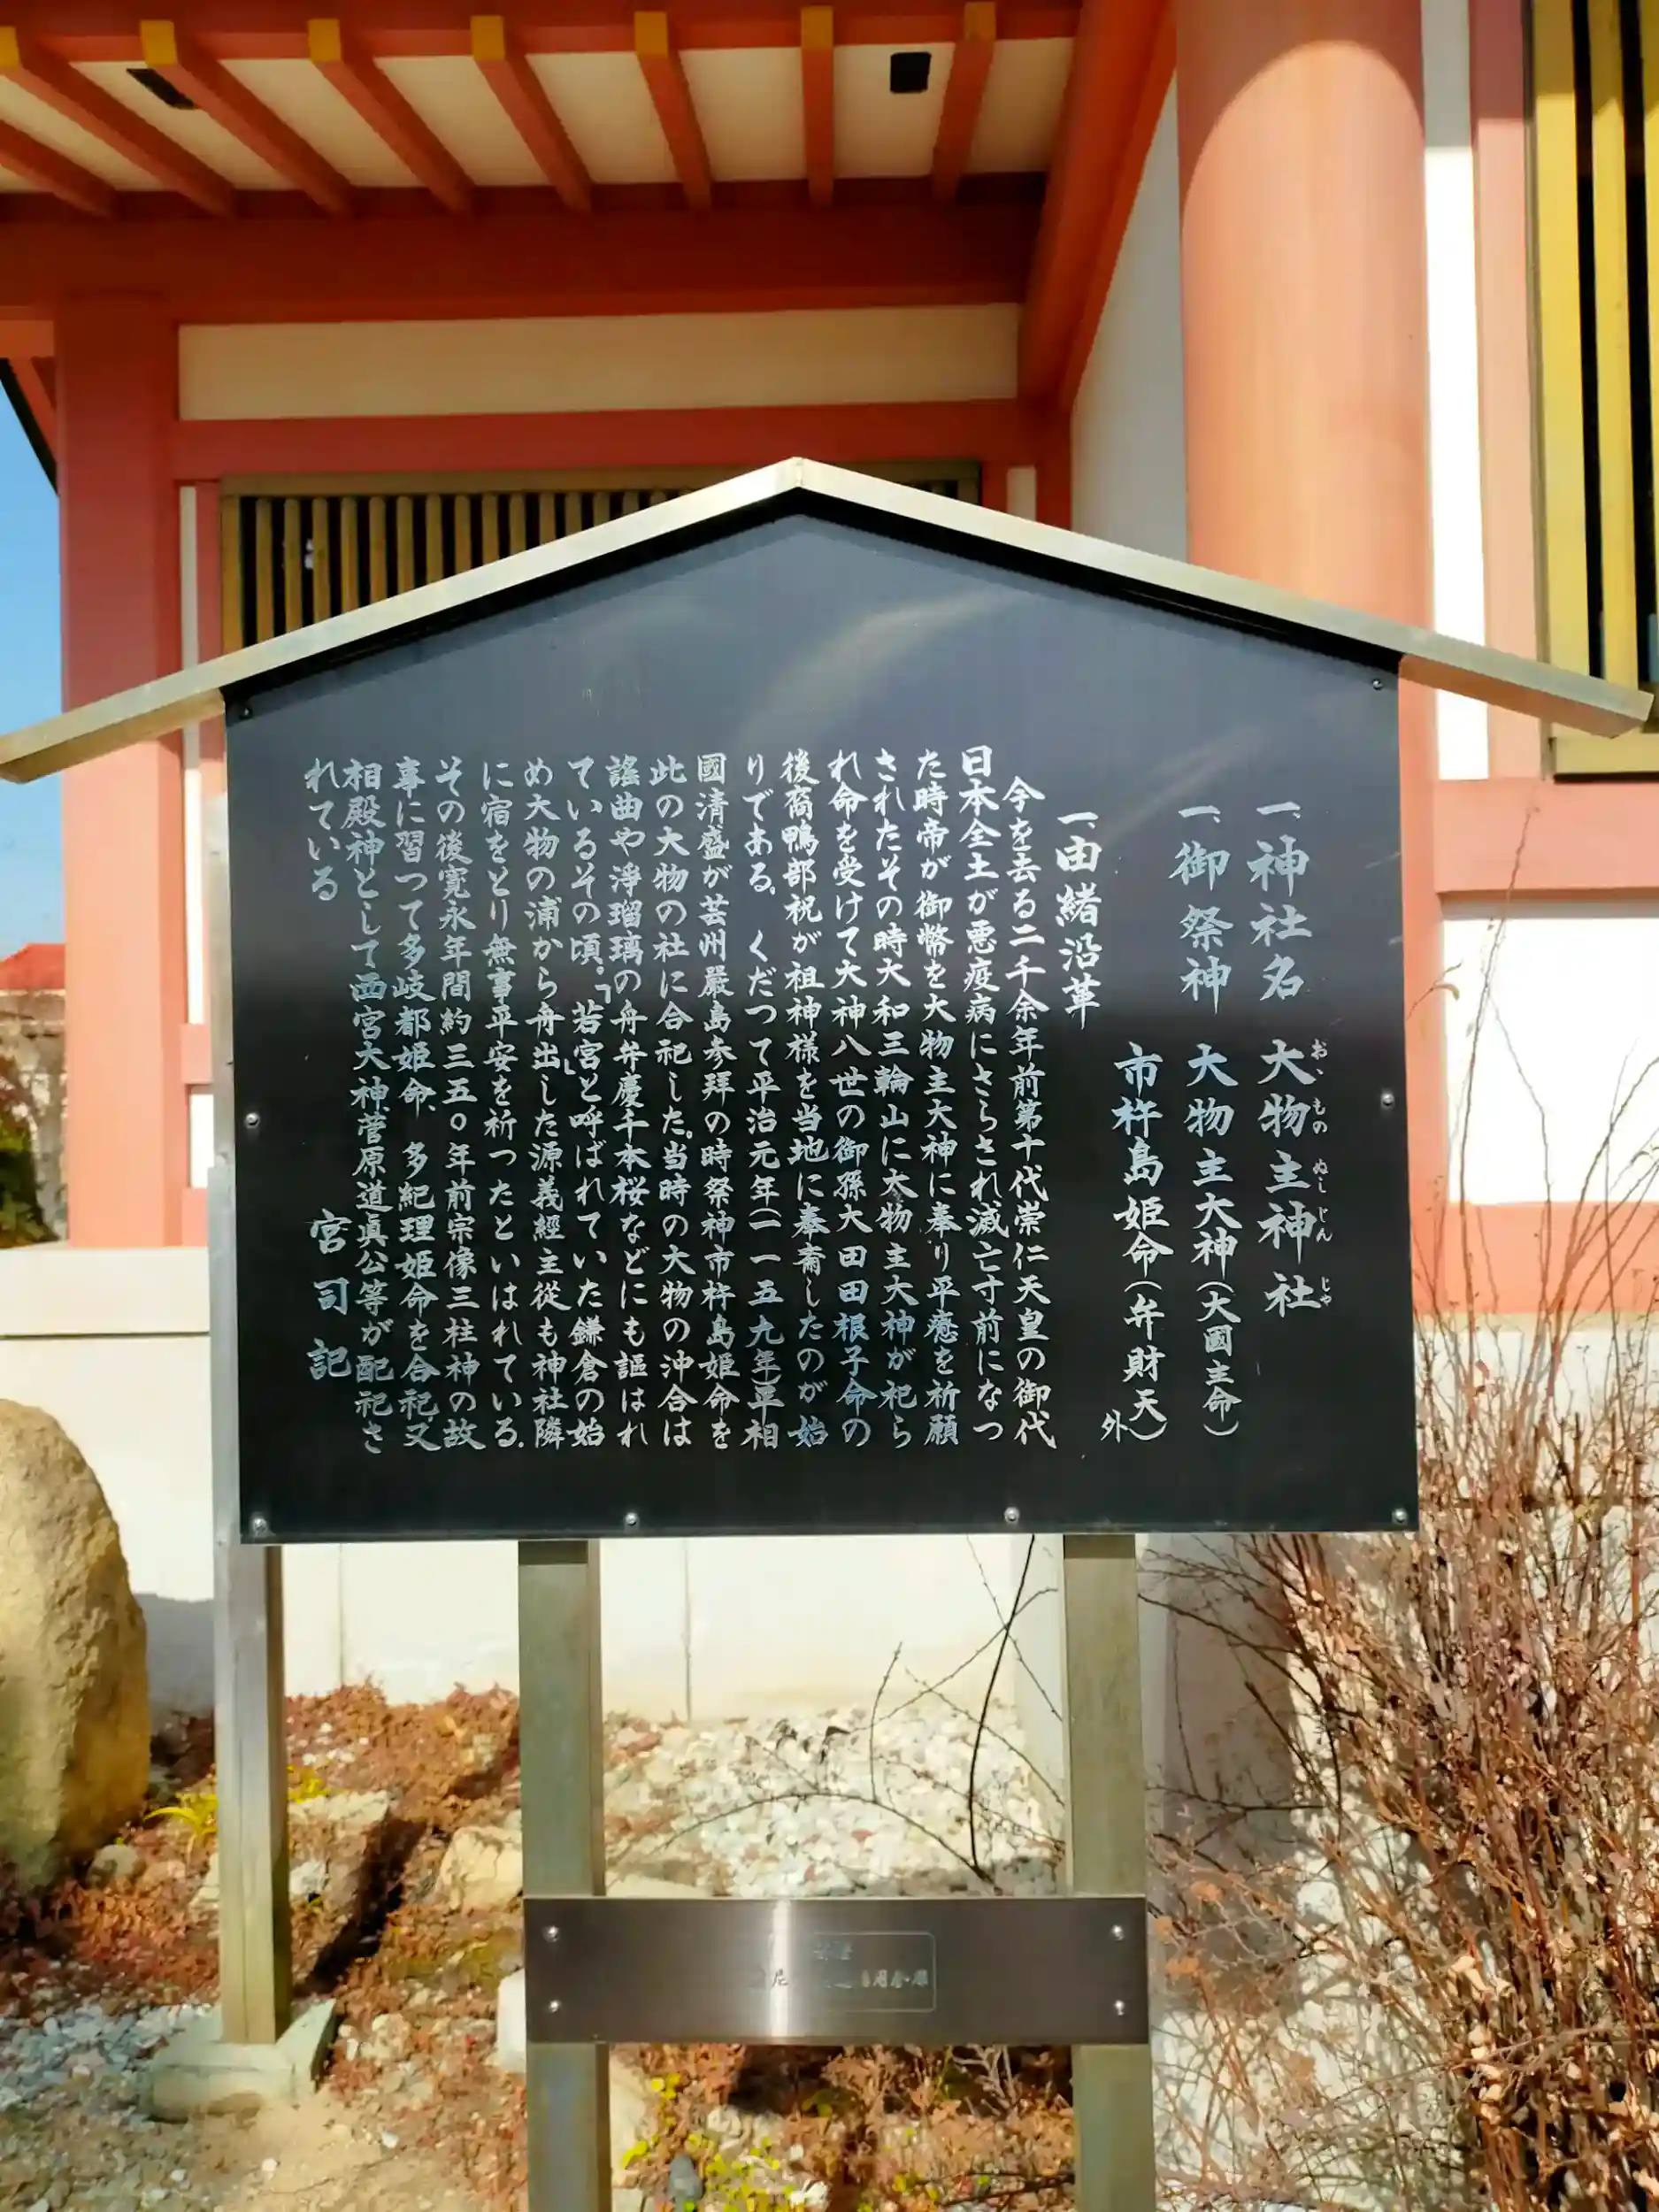 一、神社名 大物主神社
おゝものぬしじんじや
一、御祭神 大物主大神(大國主命)
市杵島姫命(弁財天)
外
一、由緒沿革
今を去る二千余年前第十代崇仁天皇の御代
日本全土が悪疫病にさらされ滅亡寸前になつ
た時帝が御幣を大物主大神に奉り平癒を祈願
されたその時大和三輪山に大物主大神が祀ら
れ命を受けて大神八世の御孫大田田根子命の
後裔鴨部祝が祖神様を当地に奉斎したのが始
りである、くだつて平治元年(一一五九年)平相
國清盛が芸州嚴島参拜の時祭神市杵島姫命を
此の大物の社に合祀した。当時の大物の沖合は
謡曲や淨瑠璃の舟弁慶千本桜などにも謳はれ
ているその頃。「若宮」と呼ばれていた鎌倉の始
め大物の浦から舟出した源義經主從も神社隣
に宿をとり無事平安を祈つたといはれている。
その後寛永年間約三五〇年前宗像三柱神の故
事に習つて多岐都姫命、多紀理姫命を合祀又
相殿神として西宮大神、菅原道眞公等が配祀さ
れている
宮司記